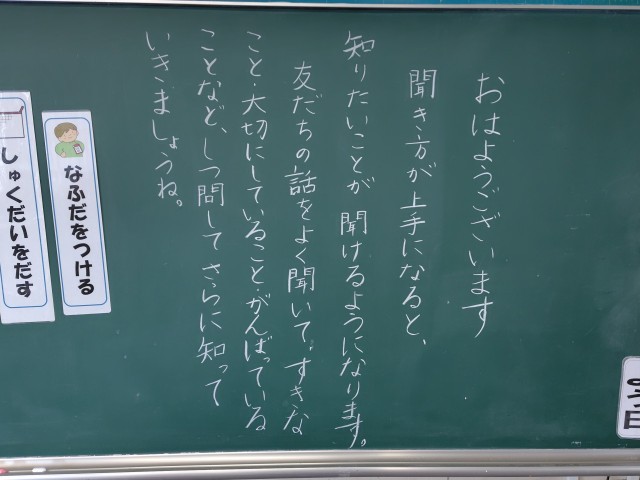 おはようございます
聞き方が上手になると、
知りたいことが聞けるようになります。
友だちの話をよく聞いて、すきな
こと・大切にしていること・がんばっている
ことなど、しつ問してさらに知って
いきましょうね。
なふだをつける
しゅくだいをだす